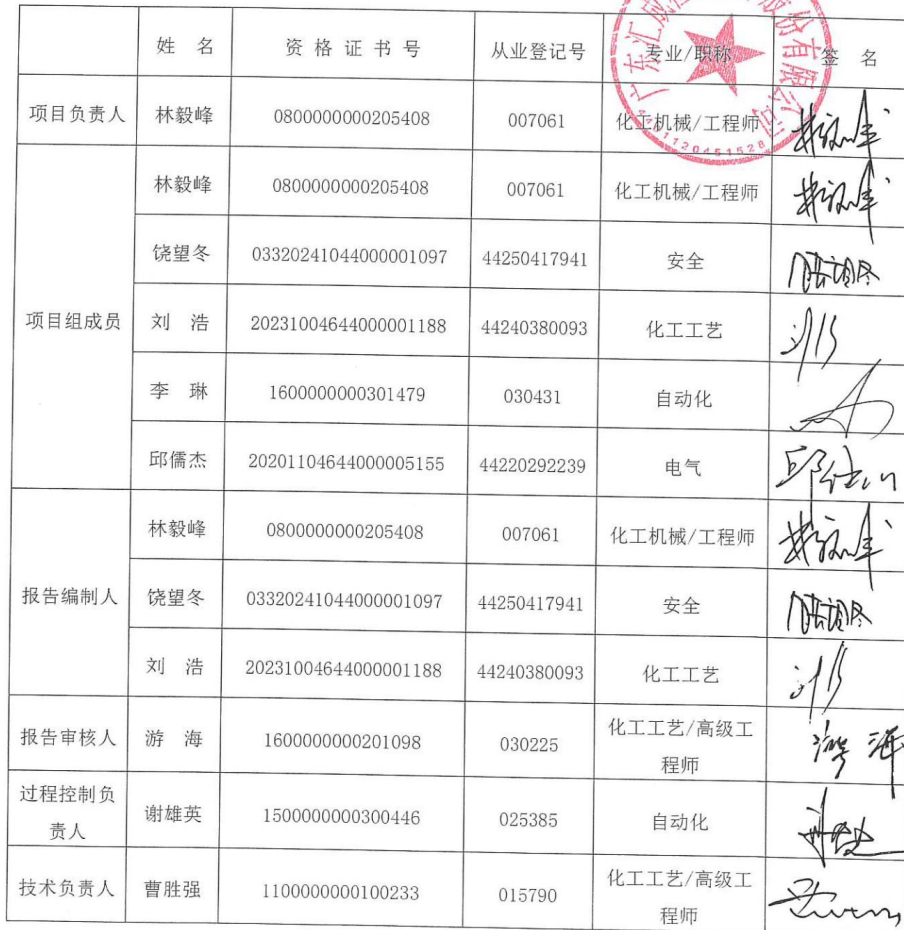 姓 名 资 格 证 书 号 从业登记号 专业/职称 签 名
项目负责人 林毅峰 0800000000205408 007061 化工机械/工程师 林毅峰
项目组成员 林毅峰 0800000000205408 007061 化工机械/工程师 林毅峰
饶望冬 03320241044000001097 44250417941 安全 饶望冬
刘 浩 20231004644000001188 44240380093 化工工艺
李 琳 1600000000301479 030431 自动化
邱儒杰 20201104644000005155 44220292239 电气
报告编制人 林毅峰 0800000000205408 007061 化工机械/工程师 林毅峰
饶望冬 03320241044000001097 44250417941 安全 饶望冬
刘 浩 20231004644000001188 44240380093 化工工艺
报告审核人 游 海 1600000000201098 030225 化工工艺/高级工
程师 游海
过程控制负
责人 谢雄英 1500000000300446 025385 自动化
技术负责人 曹胜强 1100000000100233 015790 化工工艺/高级工
程师
广东汇成
股份有限公司